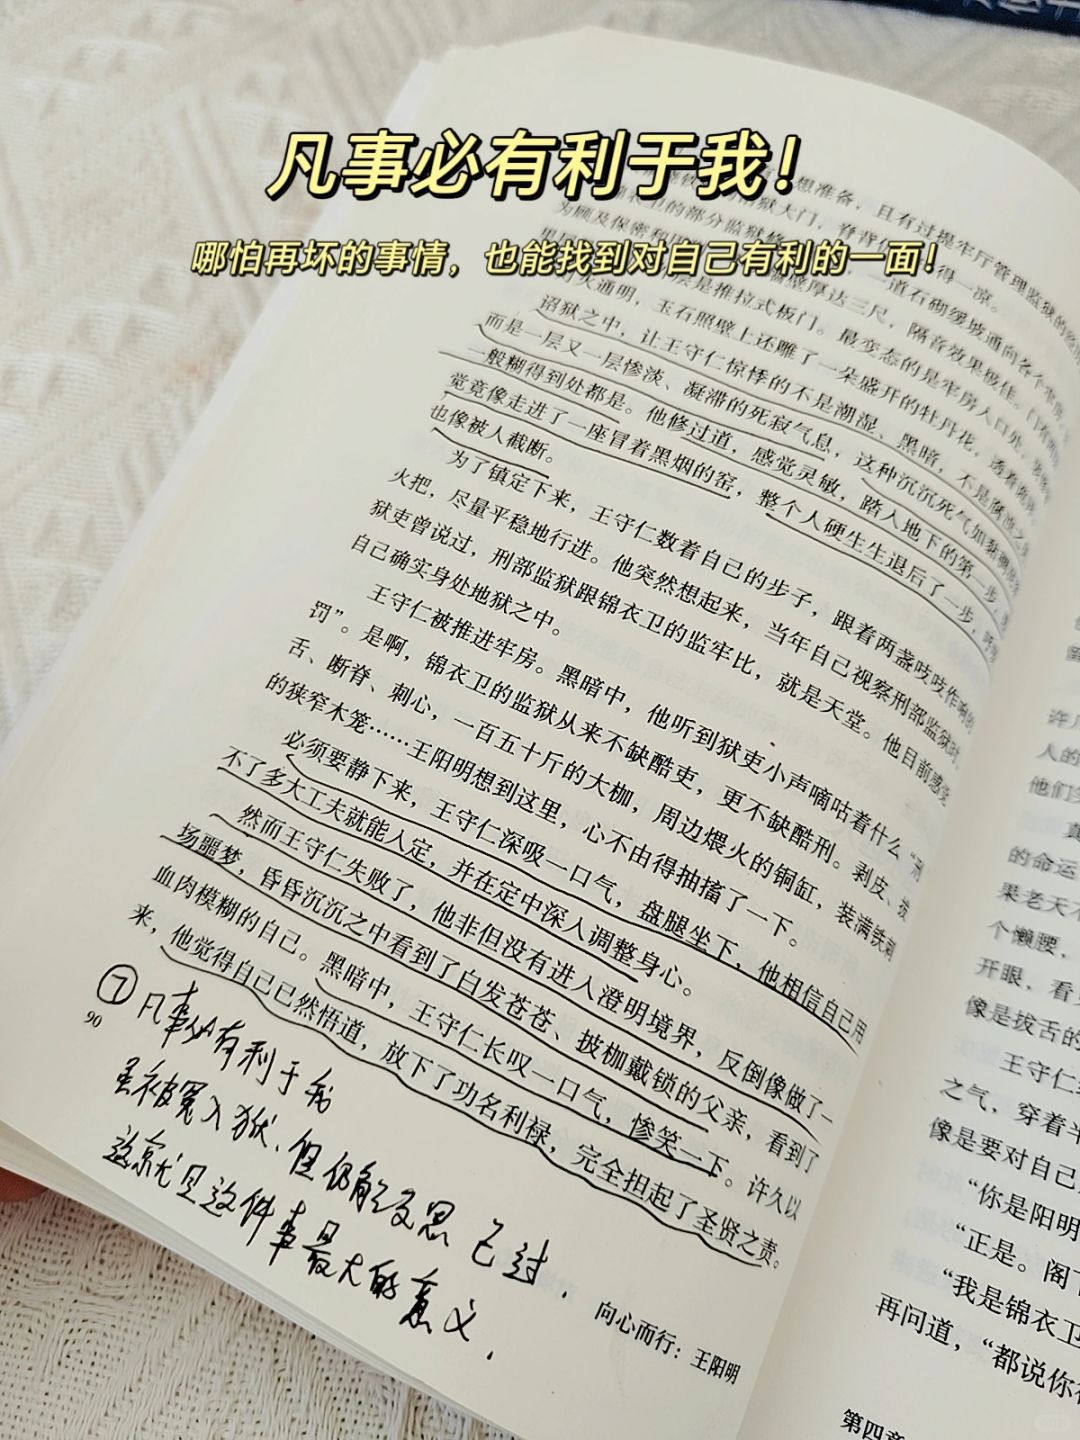 凡事必有利于我！
哪怕再坏的事情，也能找到对自己有利的一面！
想准备，且有过提牢厅管理监狱的经
狱大门，脊背
得一凉。
卫的部分监狱修
一道石砌缓坡通向各个牢房。
为顾及保密和
墙壁厚达三尺，隔音效果极佳。门有两
层是推拉式板门。最变态的是牢房入口处，
灯火通明，玉石照壁上还雕了一朵盛开的牡丹花，透着
诏狱之中，让王守仁惊悸的不是潮湿、黑暗，不是腐蚀之
而是一层又一层惨淡、凝滞的死寂气息，这种沉沉死气如黏稠
一般糊得到处都是。他修过道，感觉灵敏，踏入地下的第一步，
觉竟像走进了一座冒着黑烟的窑，整个人硬生生退后了一步，呼吸
也像被人截断。
为了镇定下来，王守仁数着自己的步子，跟着两盏吱吱作响的
火把，尽量平稳地行进。他突然想起来，当年自己视察刑部监狱时，
狱吏曾说过，刑部监狱跟锦衣卫的监牢比，就是天堂。他目前感觉
自己确实身处地狱之中。
王守仁被推进牢房。黑暗中，他听到狱吏小声嘀咕着什么“刑
罚”。是啊，锦衣卫的监狱从来不缺酷吏，更不缺酷刑。剥皮、拔
舌、断脊、刺心，一百五十斤的大枷，周边煨火的铜缸，装满铁刺
的狭窄木笼……王阳明想到这里，心不由得抽搐了一下。
必须要静下来，王守仁深吸一口气，盘腿坐下，他相信自己用
不了多大工夫就能入定，并在定中深入调整身心。
然而王守仁失败了，他非但没有进入澄明境界，反倒像做了一
场噩梦，昏昏沉沉之中看到了白发苍苍、披枷戴锁的父亲，看到了
血肉模糊的自己。黑暗中，王守仁长叹一口气，惨笑一下。许久以
来，他觉得自己已然悟道，放下了功名利禄，完全担起了圣贤之责。
90
⑦凡事必有利于我
虽被冤入狱、但仍能反思己过，
这就是这件事最大的意义。
向心而行：王阳明
许
人的
他们
真
的命运
果老天不
个懒腰，
开眼，看
像是拔舌的
王守仁
之气，穿着半
像是要对自己
“你是阳明
“正是。阁下
“我是锦衣卫
再问道，“都说你
第四章